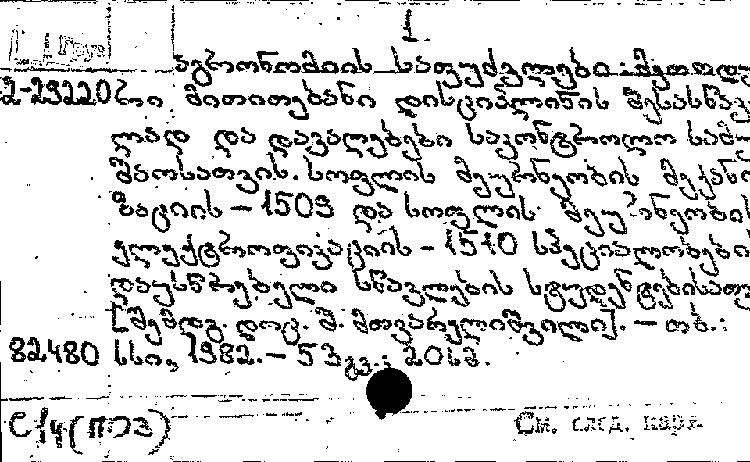 1
Груз
აგრონომიის საფუძვლები : მეთოდუ
2-29220 რი მითითებანი დისციპლინის შესასწავ
ლად და დავალებები საკონტროლო სამუ
შაოსათვის. სოფლის მეურნეობის მექანი
ზაციის – 1509 და სოფლის მეურნეობის
ელექტროფიკაციის – 1510 სპეციალობების
დაუსწრებელი სწავლების სტუდენტებისათვ
[შემდგ. დოც. შ. მთვარელიშვილი]. – თბ. :
82480 სსი, 1982. – 53 გვ.; 20სმ.
С14(ПОЗ)
См. след. карт.